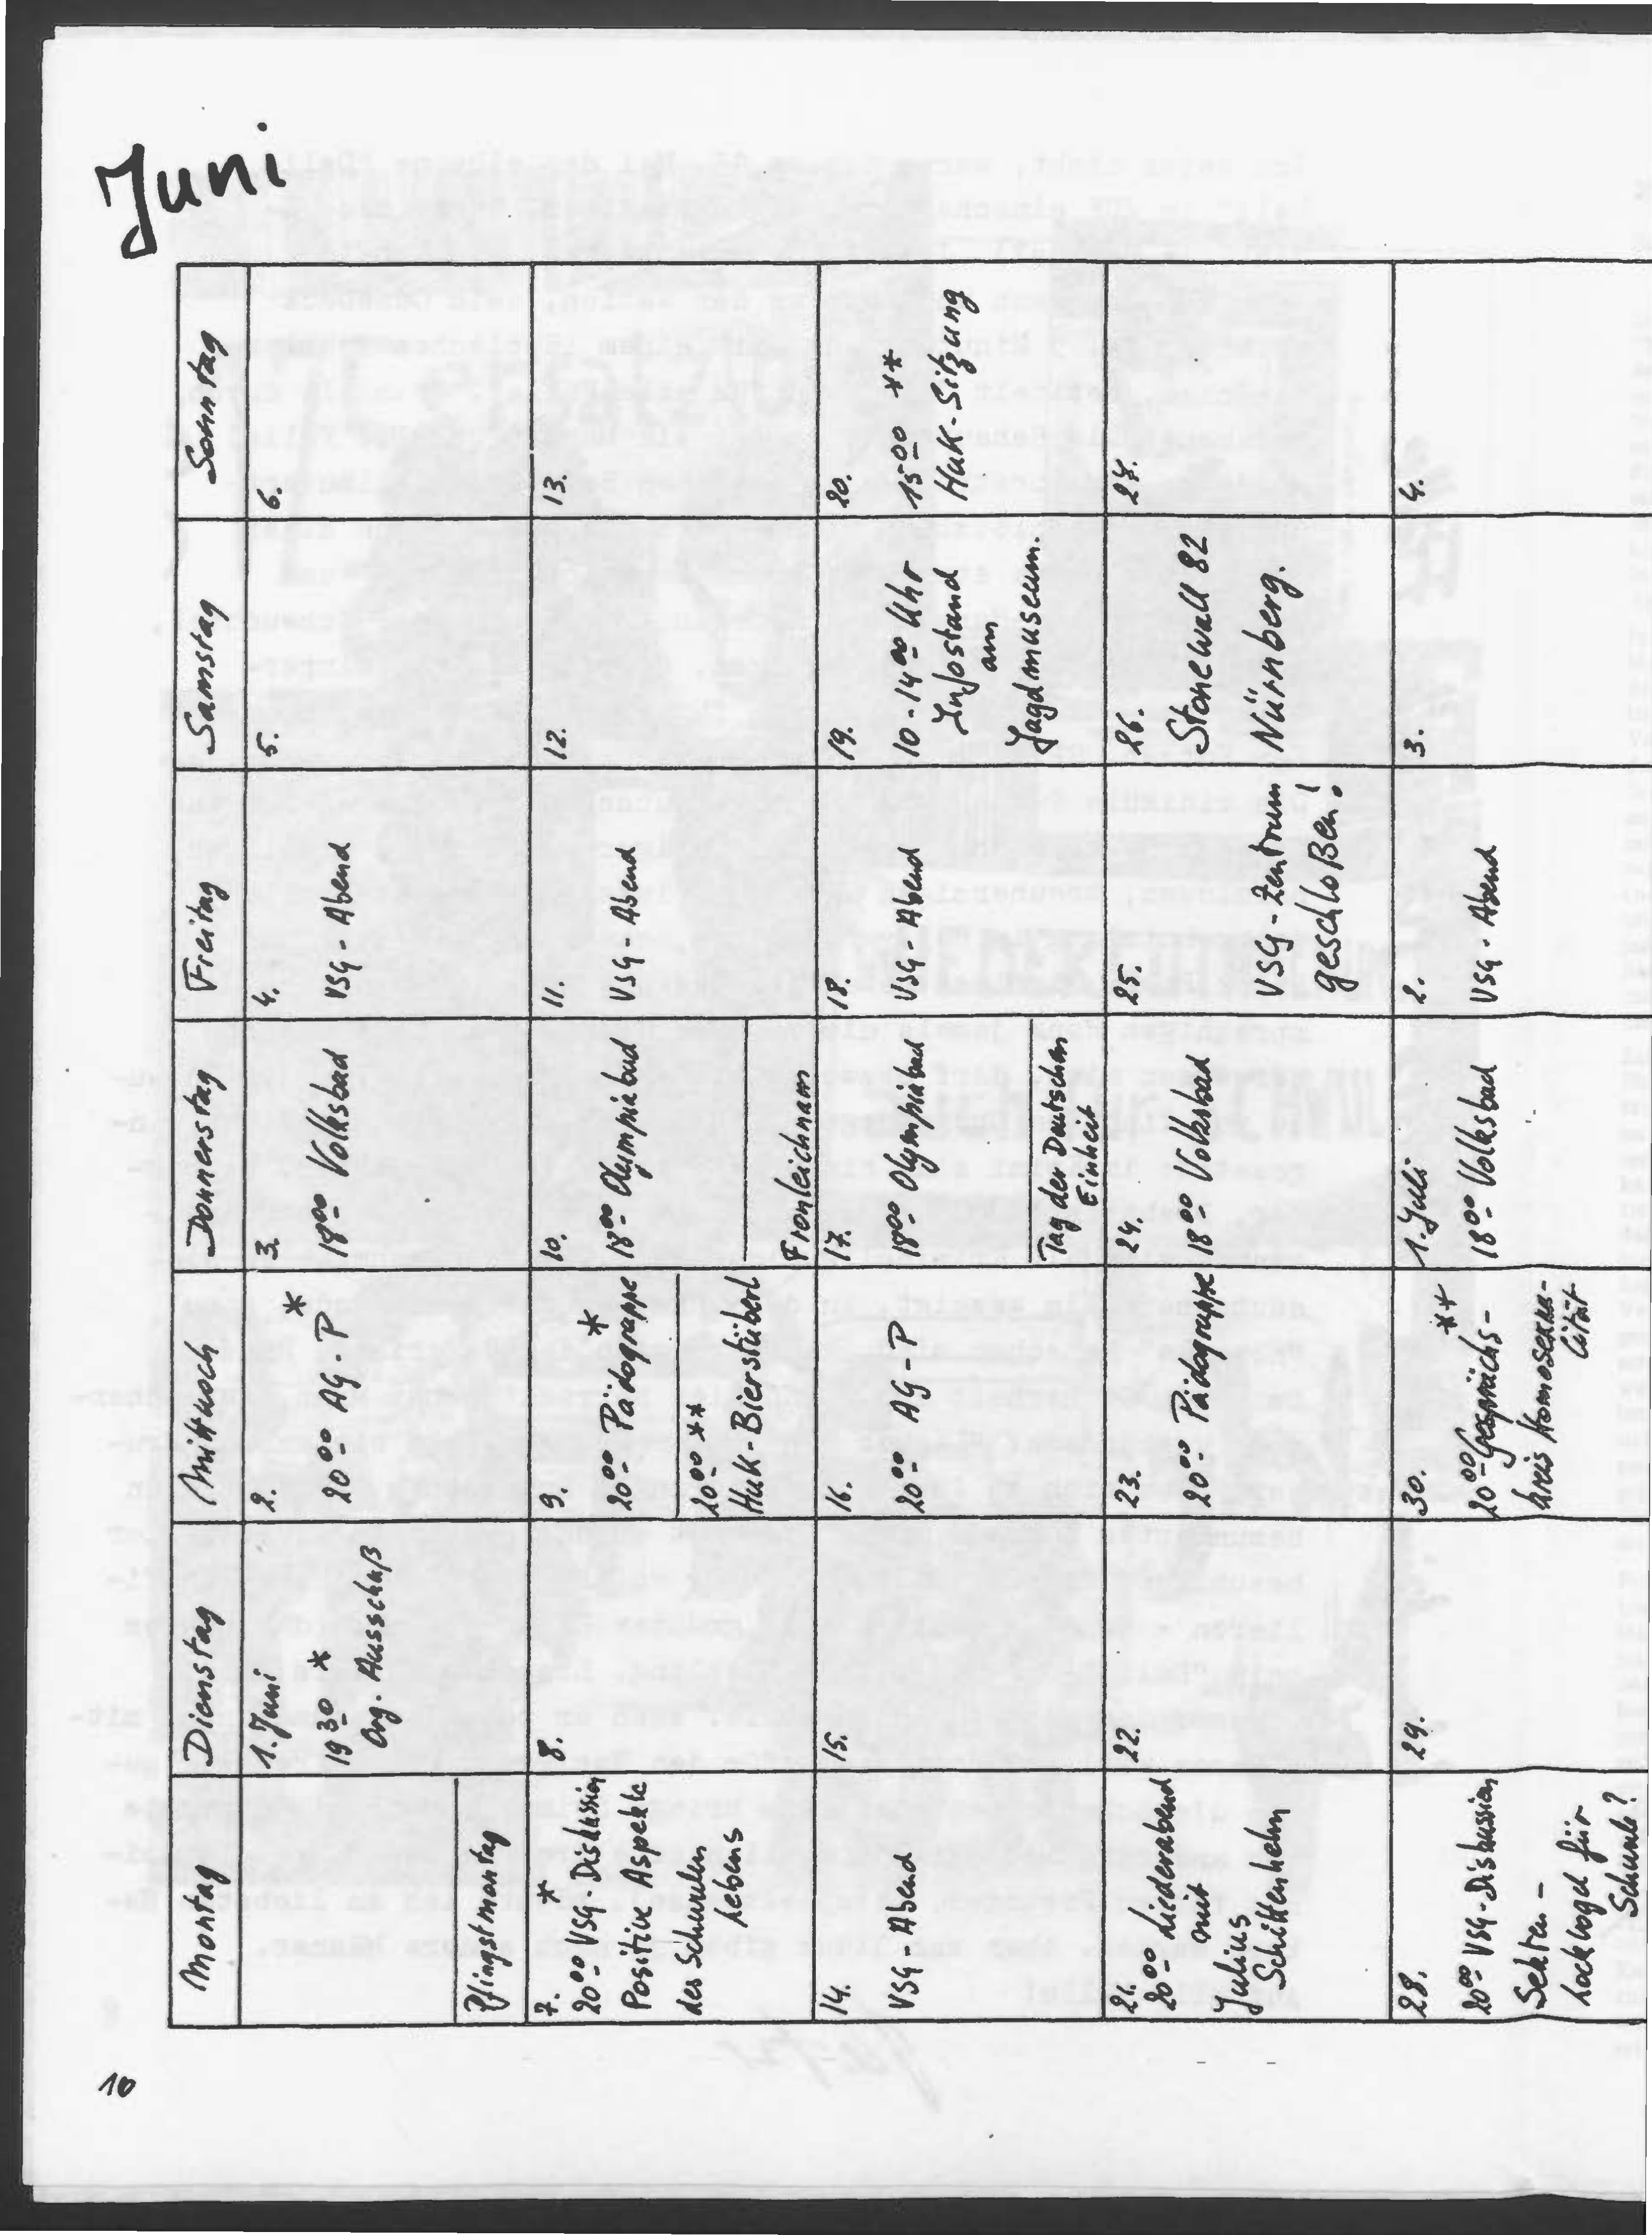 Juni
Montag Dienstag Mittwoch Donnerstag Freitag Samstag Sonntag
Pfingstmontag
1. Juni
19 30 *
Org. Ausschuß
2.
*
20 00 AG-P
3.
18 00 Volksbad
4.
VSG-Abend
5.
6.
7.
*
20 00 VSG-Diskussion
Positive Aspekte
des Schwulen
Lebens
8.
9.
*
20 00 Pädogruppe
20 00 **
HuK-Bierstüberl
10.
18 00 Olympiabad
Fronleichnam
11.
VSG-Abend
12.
13.
14.
VSG-Abend
15.
16.
20 00 AG-P
17.
18 00 Olympiabad
Tag der Deutschen
Einheit
18.
VSG-Abend
19.
10-14 00 Uhr
Infostand
am
Jagdmuseum.
20.
15 00 **
HuK-Sitzung
21.
20 00 Liederabend
mit
Julius
Schittenhelm
22.
23.
20 00 Pädogruppe
24.
18 00 Volksbad
25.
VSG-Zentrum
geschloßen!
26.
Stonewall 82
Nürnberg.
27.
28.
20 00 VSG-Diskussion
Sekten-
Lockvogel für
Schwule?
29.
30.
**
20 00 Gesprächs-
kreis Homosexua-
lität
1. Juli
18 00 Volksbad
2.
VSG-Abend
3.
4.
10